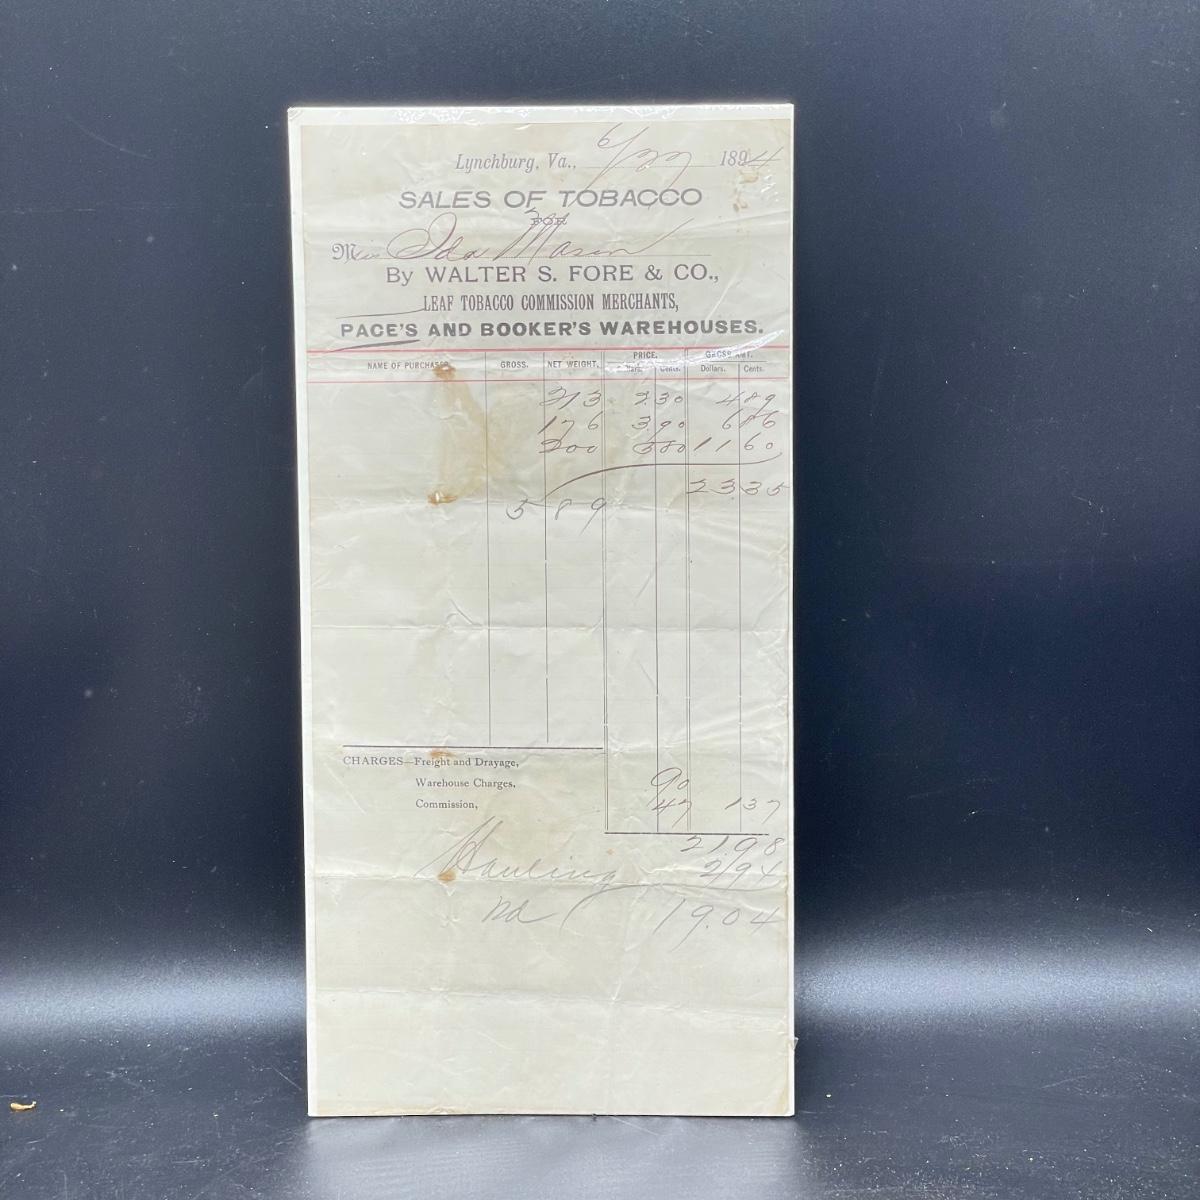 Lynchburg, Va., 6/27 1894
SALES OF TOBACCO
FOR
Miss Ida Mason
By WALTER S. FORE & CO.,
LEAF TOBACCO COMMISSION MERCHANTS,
PACE'S AND BOOKER'S WAREHOUSES.
NAME OF PURCHASER. GROSS. NET WEIGHT. PRICE. GROSS AMT.
Dollars. Cents. Dollars. Cents.
213 2 30 4 89
176 3 90 6 86
200 5 80 11 60
23 35
589
CHARGES—Freight and Drayage,
Warehouse Charges, 90
Commission, 47 1 37
21.98
Hauling 2/94
19.04